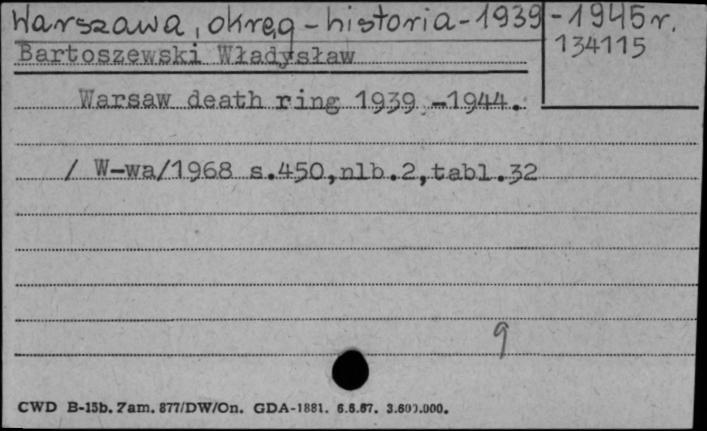 Warszawa, okręg - historia - 1939 - 1945 r.
134115
Bartoszewski Władysław
Warsaw death ring 1939 -1944.
/ W-wa/1968 s.450,nlb.2,tabl.32
9
CWD B-15b. Zam. 877/DW/On. GDA-1881. 6.6.67. 3.600.000.